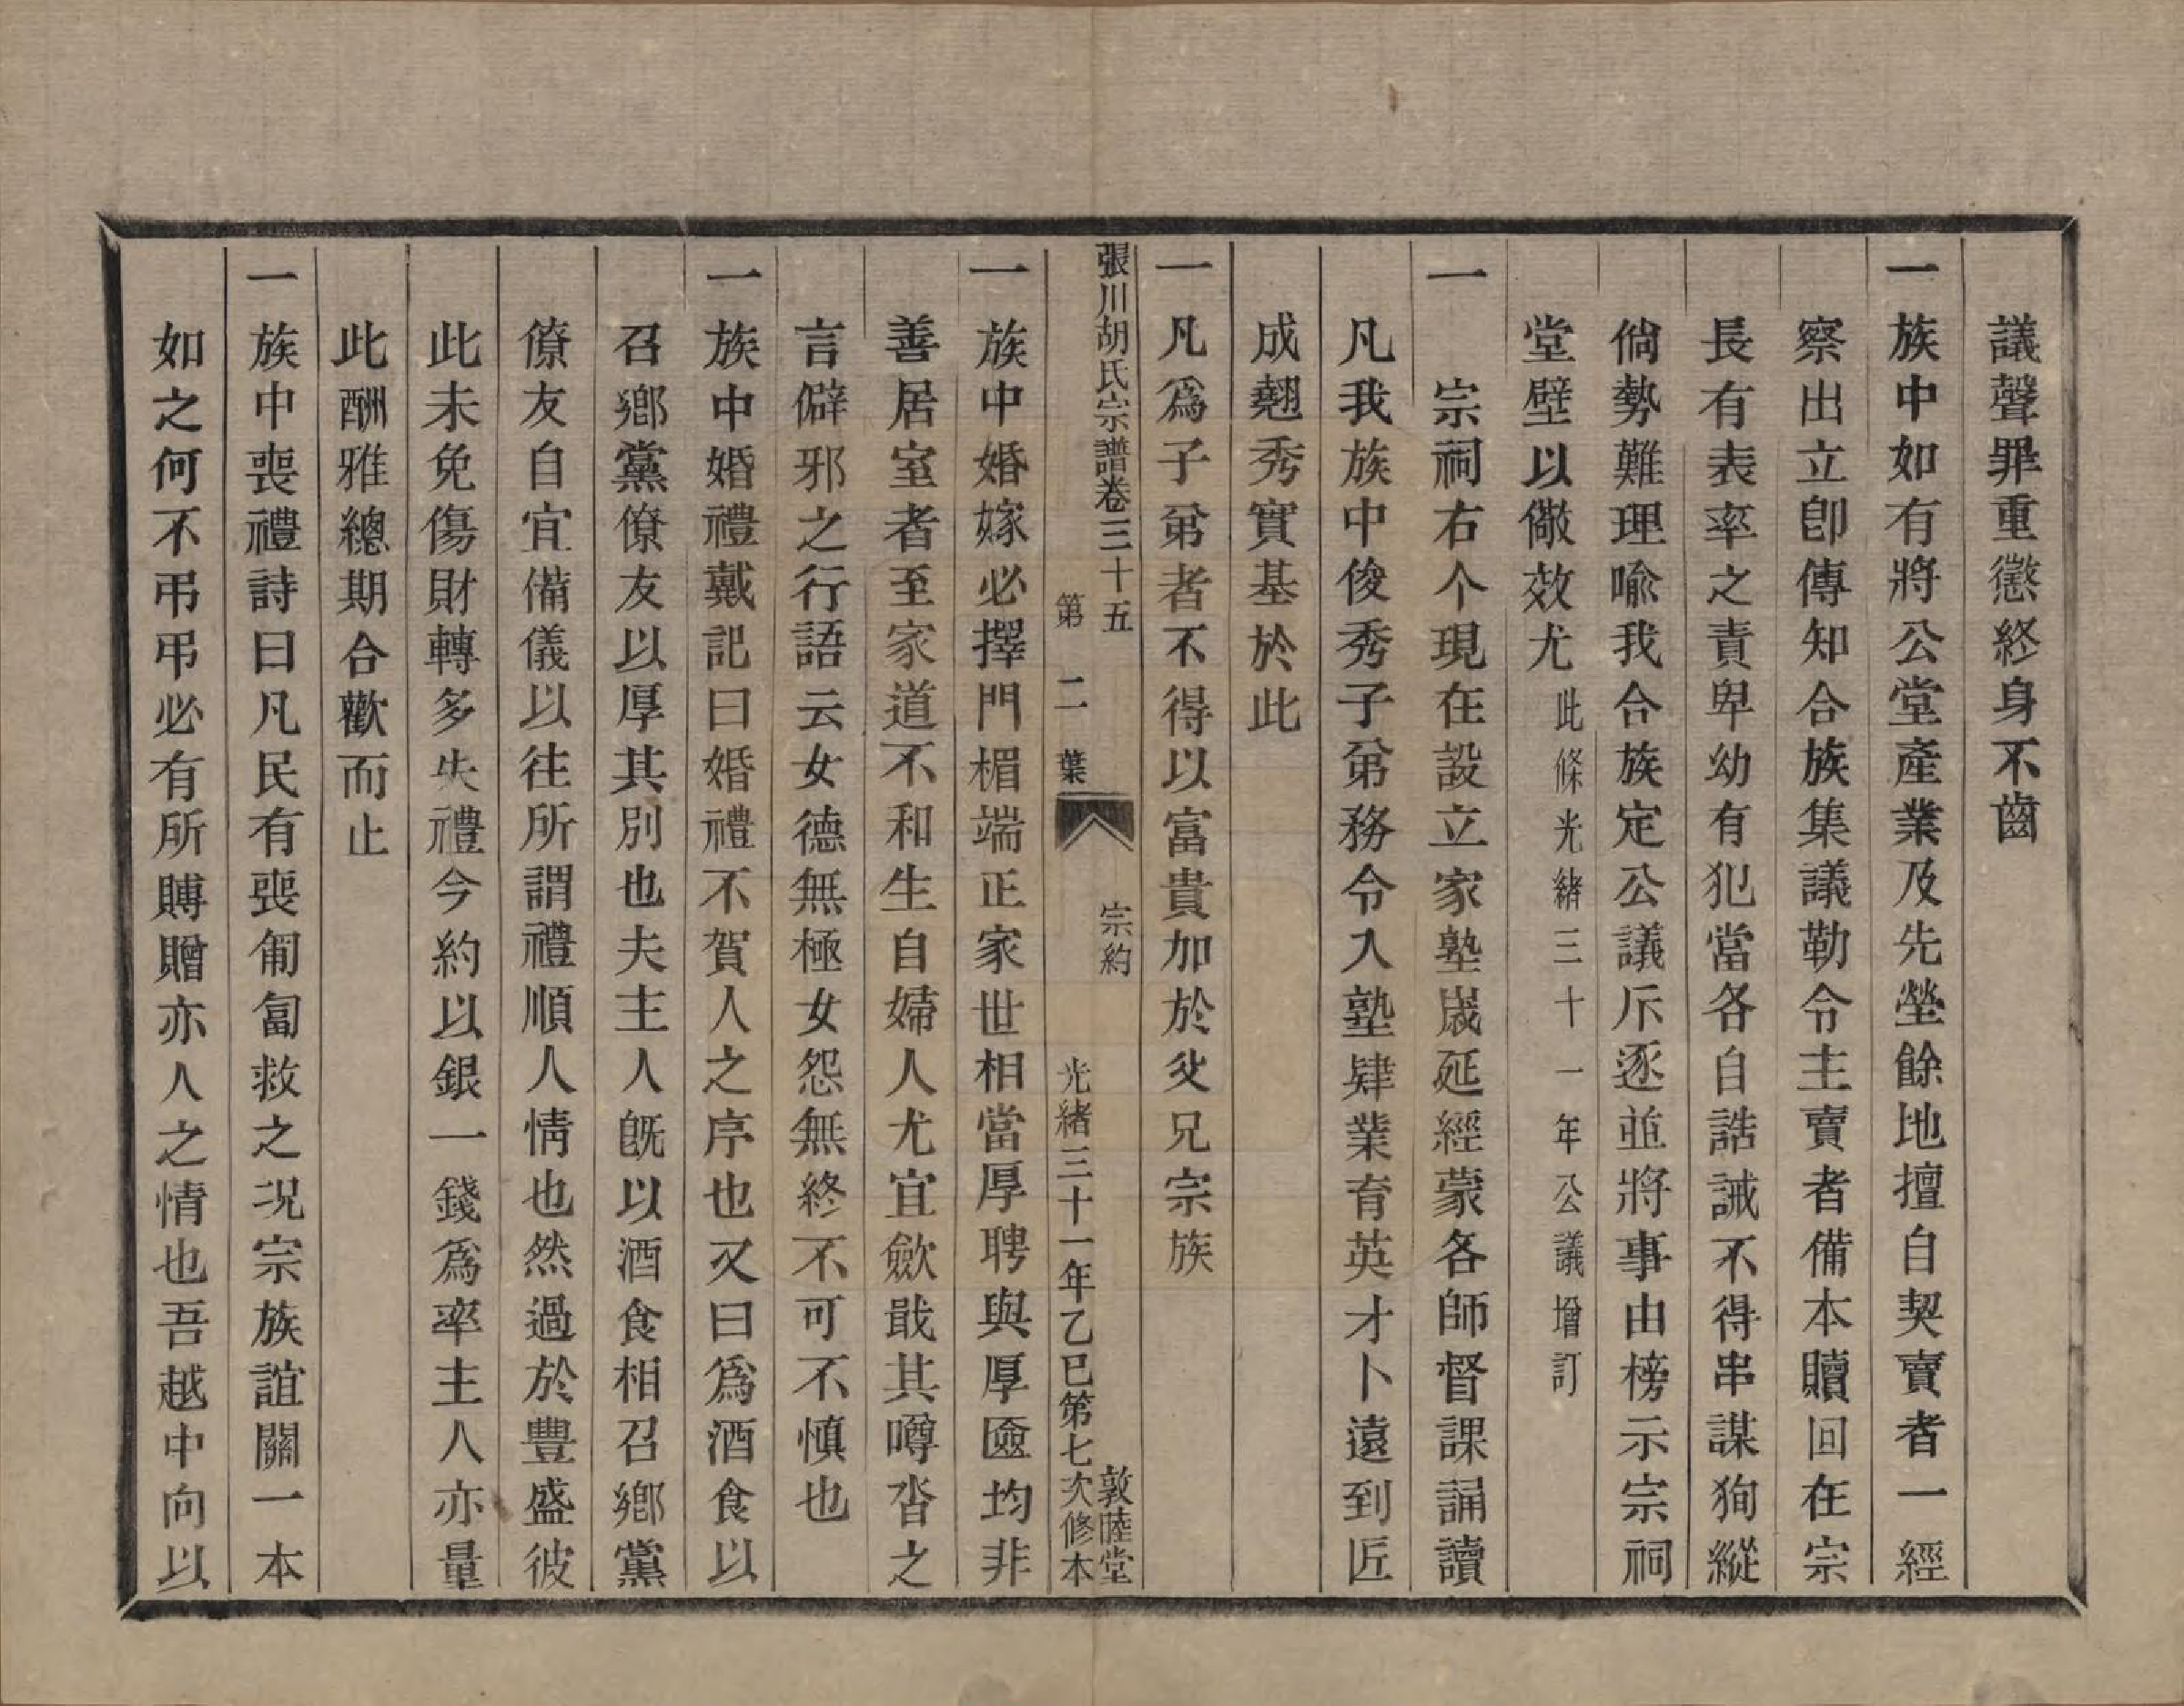 議聲罪重懲終身不齒
一族中如有將公堂產業及先塋餘地擅自契賣者一經
察出立卽傳知合族集議勒令主賣者備本贖回在宗
長有表率之責卑幼有犯當各自誥誡不得串謀狥縱
倘勢難理喻我合族定公議斥逐並將事由榜示宗祠
堂壁以儆效尤此條光緒三十一年公議增訂
一 宗祠右个現在設立家塾歲延經蒙各師督課誦讀
凡我族中俊秀子弟務令入塾肄業育英才卜遠到匠
成翹秀實基於此
一凡爲子弟者不得以富貴加於父兄宗族
張川胡氏宗譜卷三十五 宗約 敦睦堂
第二葉 光緒三十一年乙巳第七次修本
一族中婚嫁必擇門楣端正家世相當厚聘與厚匳均非
善居室者至家道不和生自婦人尤宜斂戢其噂沓之
言僻邪之行語云女德無極女怨無終不可不慎也
一族中婚禮戴記曰婚禮不賀人之序也又曰爲酒食以
召鄉黨僚友以厚其別也夫主人旣以酒食相召鄉黨
僚友自宜備儀以往所謂禮順人情也然過於豐盛彼
此未免傷財轉多失禮今約以銀一錢爲率主人亦量
此酬雅總期合歡而止
一族中喪禮詩曰凡民有喪匍匐救之况宗族誼關一本
如之何不弔弔必有所賻贈亦人之情也吾越中向以